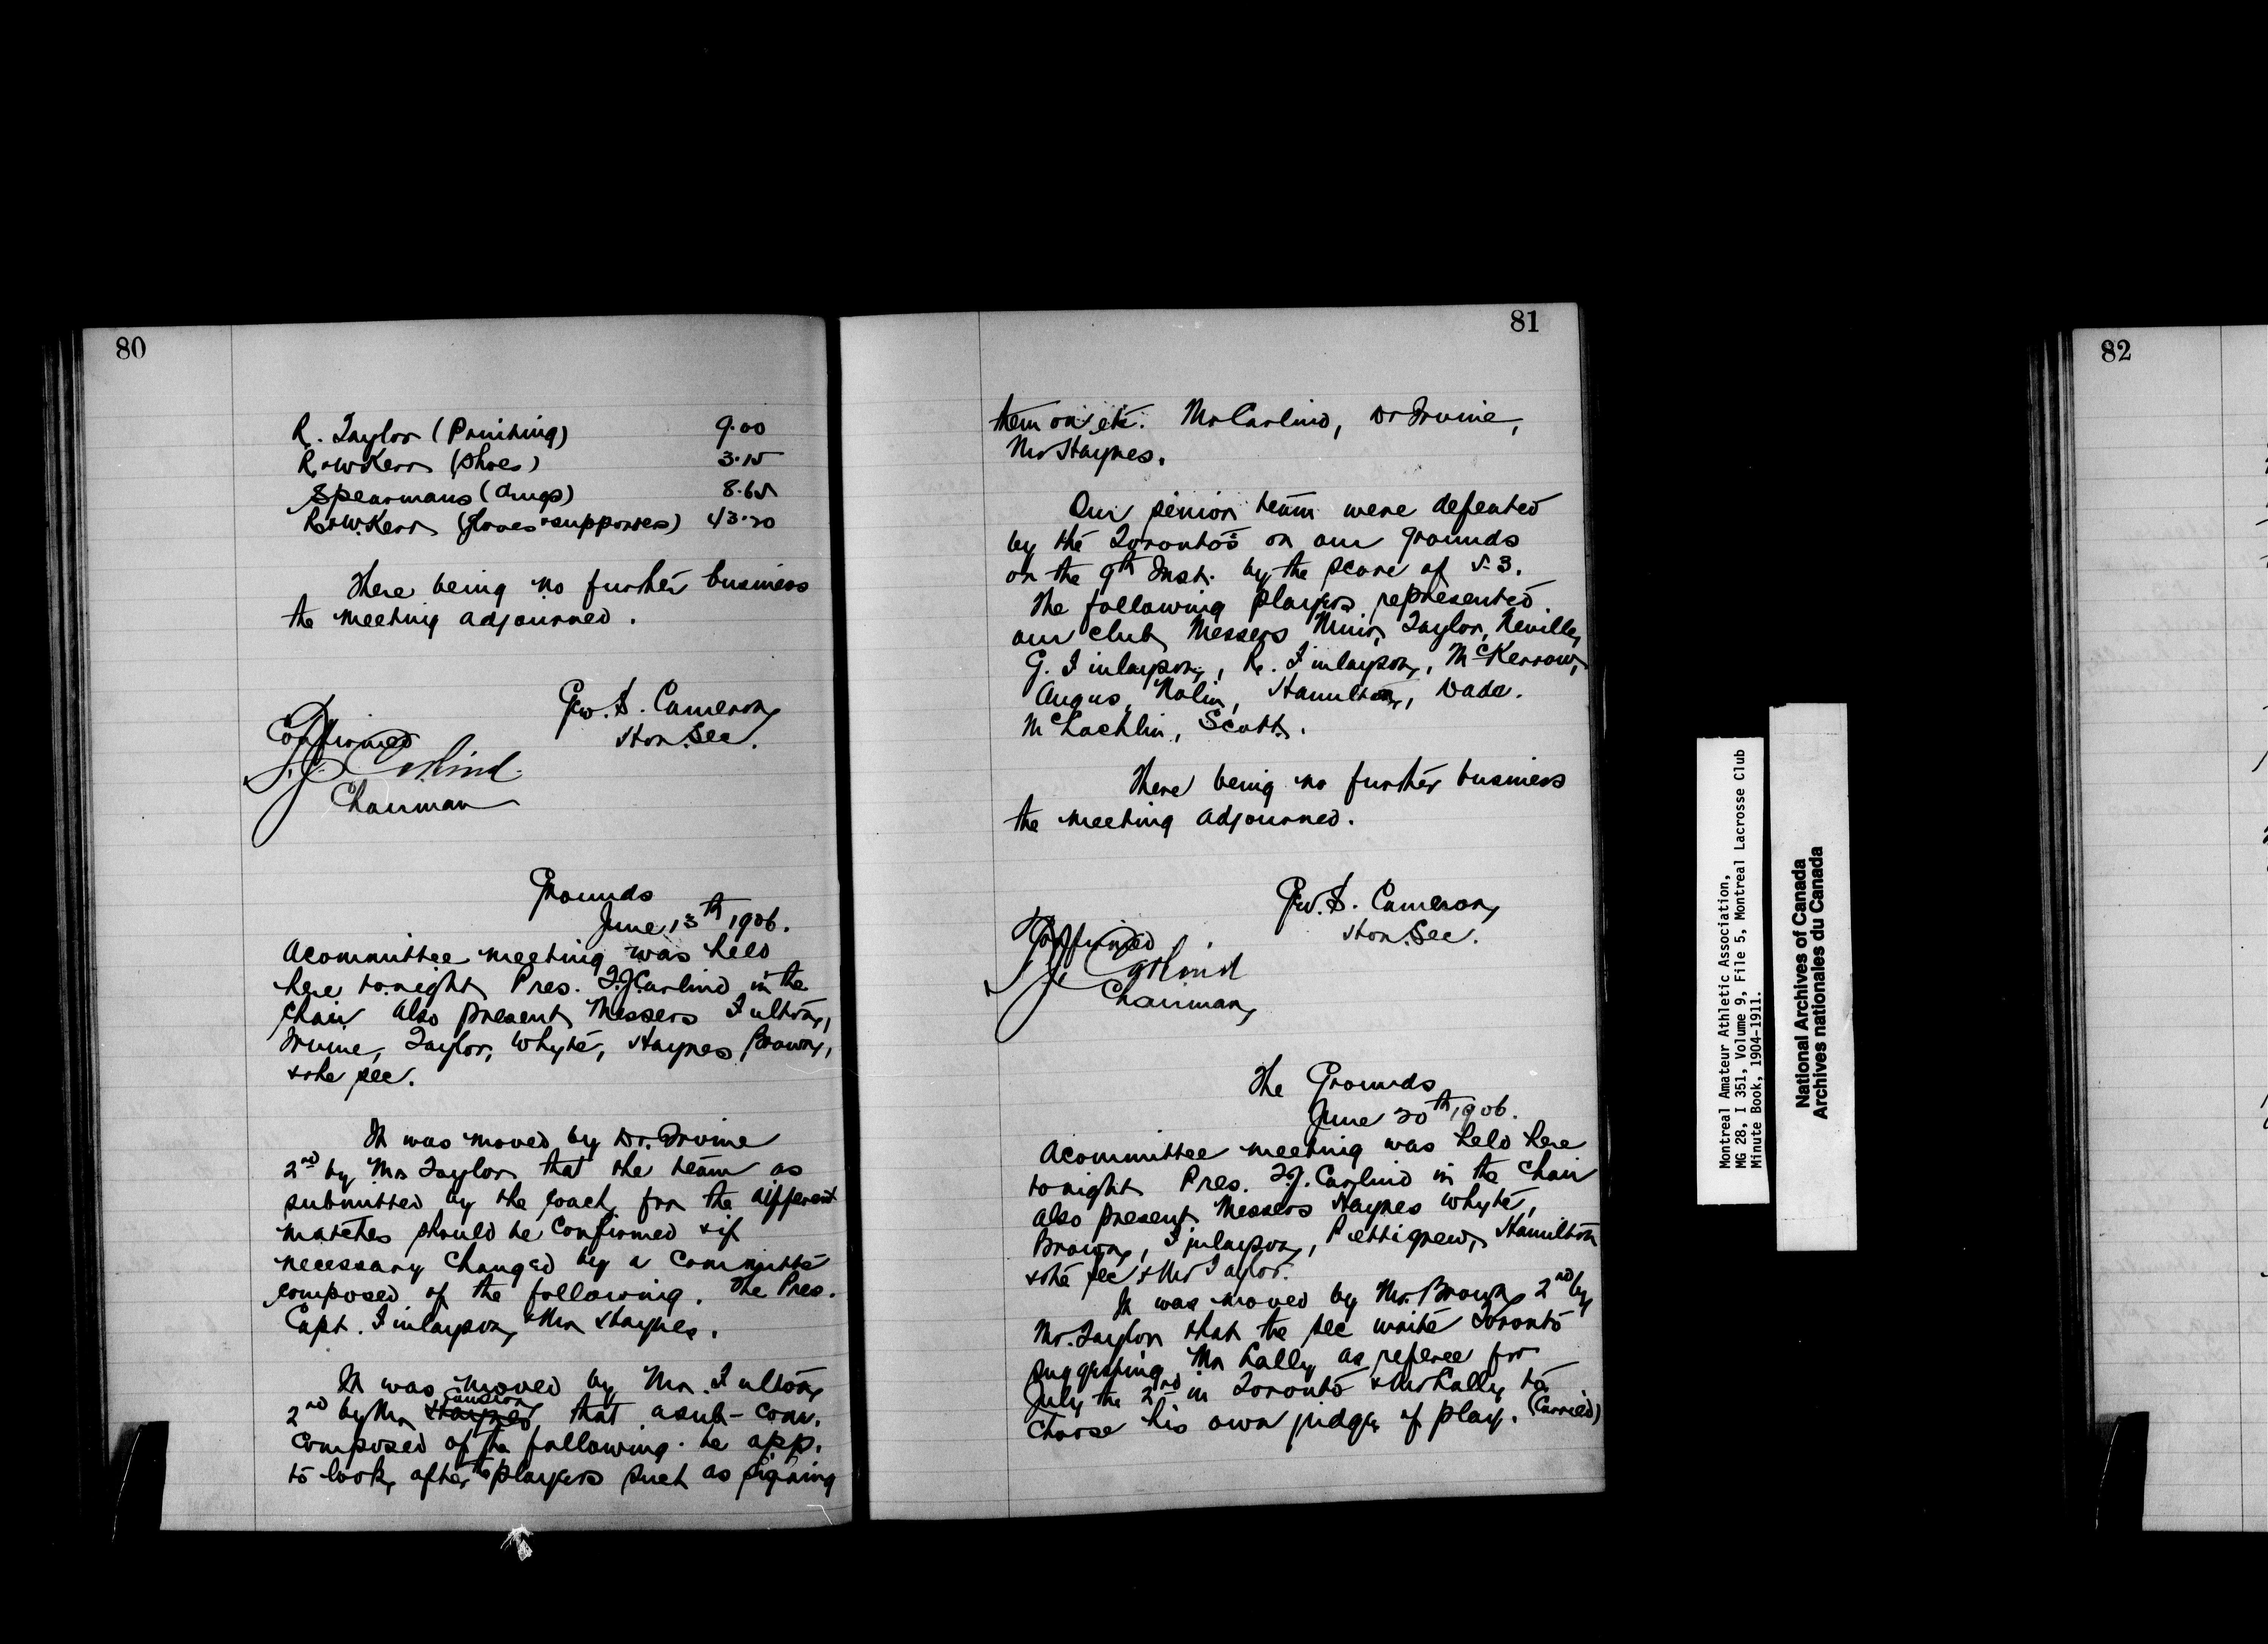 80
R. Taylor (Printing) 9.00
R. & W Kerr (shoes) 3.15
Spearmans (drugs) 8.65
R & W. Kerr (gloves & supporters) 43.20
There being no further business
the meeting adjourned.
Geo. S. Cameron
Hon. Sec.
Confirmed
T. J. Carlind
Chairman
Grounds
June 13th 1906.
A committee meeting was held
here to.night Pres. T.J. Carlind in the
chair also present Messers Fulton,
Irvine, Taylor, Whyte, Haynes Brown,
& the sec.
It was moved by Dr. Irvine
2nd by Mr Taylor that the team as
submitted by the coach for the different
matches should be confirmed & if
necessary changed by a committe
composed of the following. The Pres.
Capt. Finlayson & Mr Haynes.
It was moved by Mr. Fulton
2nd by Mr Haynes that a sub-com.
composed of the following. be app.
to look after the players such as signing
81
them on etc. Mr Carlind, Dr Irvine,
Mr Haynes.
Our senior team were defeated
by the Toronto's on our grounds
on the 9th Inst. by the score of 5-3.
The following players represented
our club Messers Muir, Taylor, Neville,
G. Finlayson, R. Finlayson, McKerrow,
Angus, Nolin, Hamilton, Dade.
McLachlin, Scott.
There being no further business
the meeting adjourned.
Geo. S. Cameron
Hon. Sec.
Confirmed
T. J. Carlind
Chairman
The Grounds
June 20th 1906.
A committee meeting was held here
to night Pres. T.J. Carlind in the Chair
also present Messers Haynes Whyte,
Brown, Finlayson, Pettigrew, Hamilton
& the sec & Mr Taylor.
It was moved by Mr. Brown 2nd by
Mr. Taylor that the sec write Toronto
suggesting Mr Lally as referee for
July the 2nd in Toronto & Mr Lally to
choose his own judge of play. (Carried)
Montreal Amateur Athletic Association,
MG 28, I 351, Volume 9, File 5, Montreal Lacrosse Club
Minute Book, 1904-1911.
National Archives of Canada
Archives nationales du Canada
82